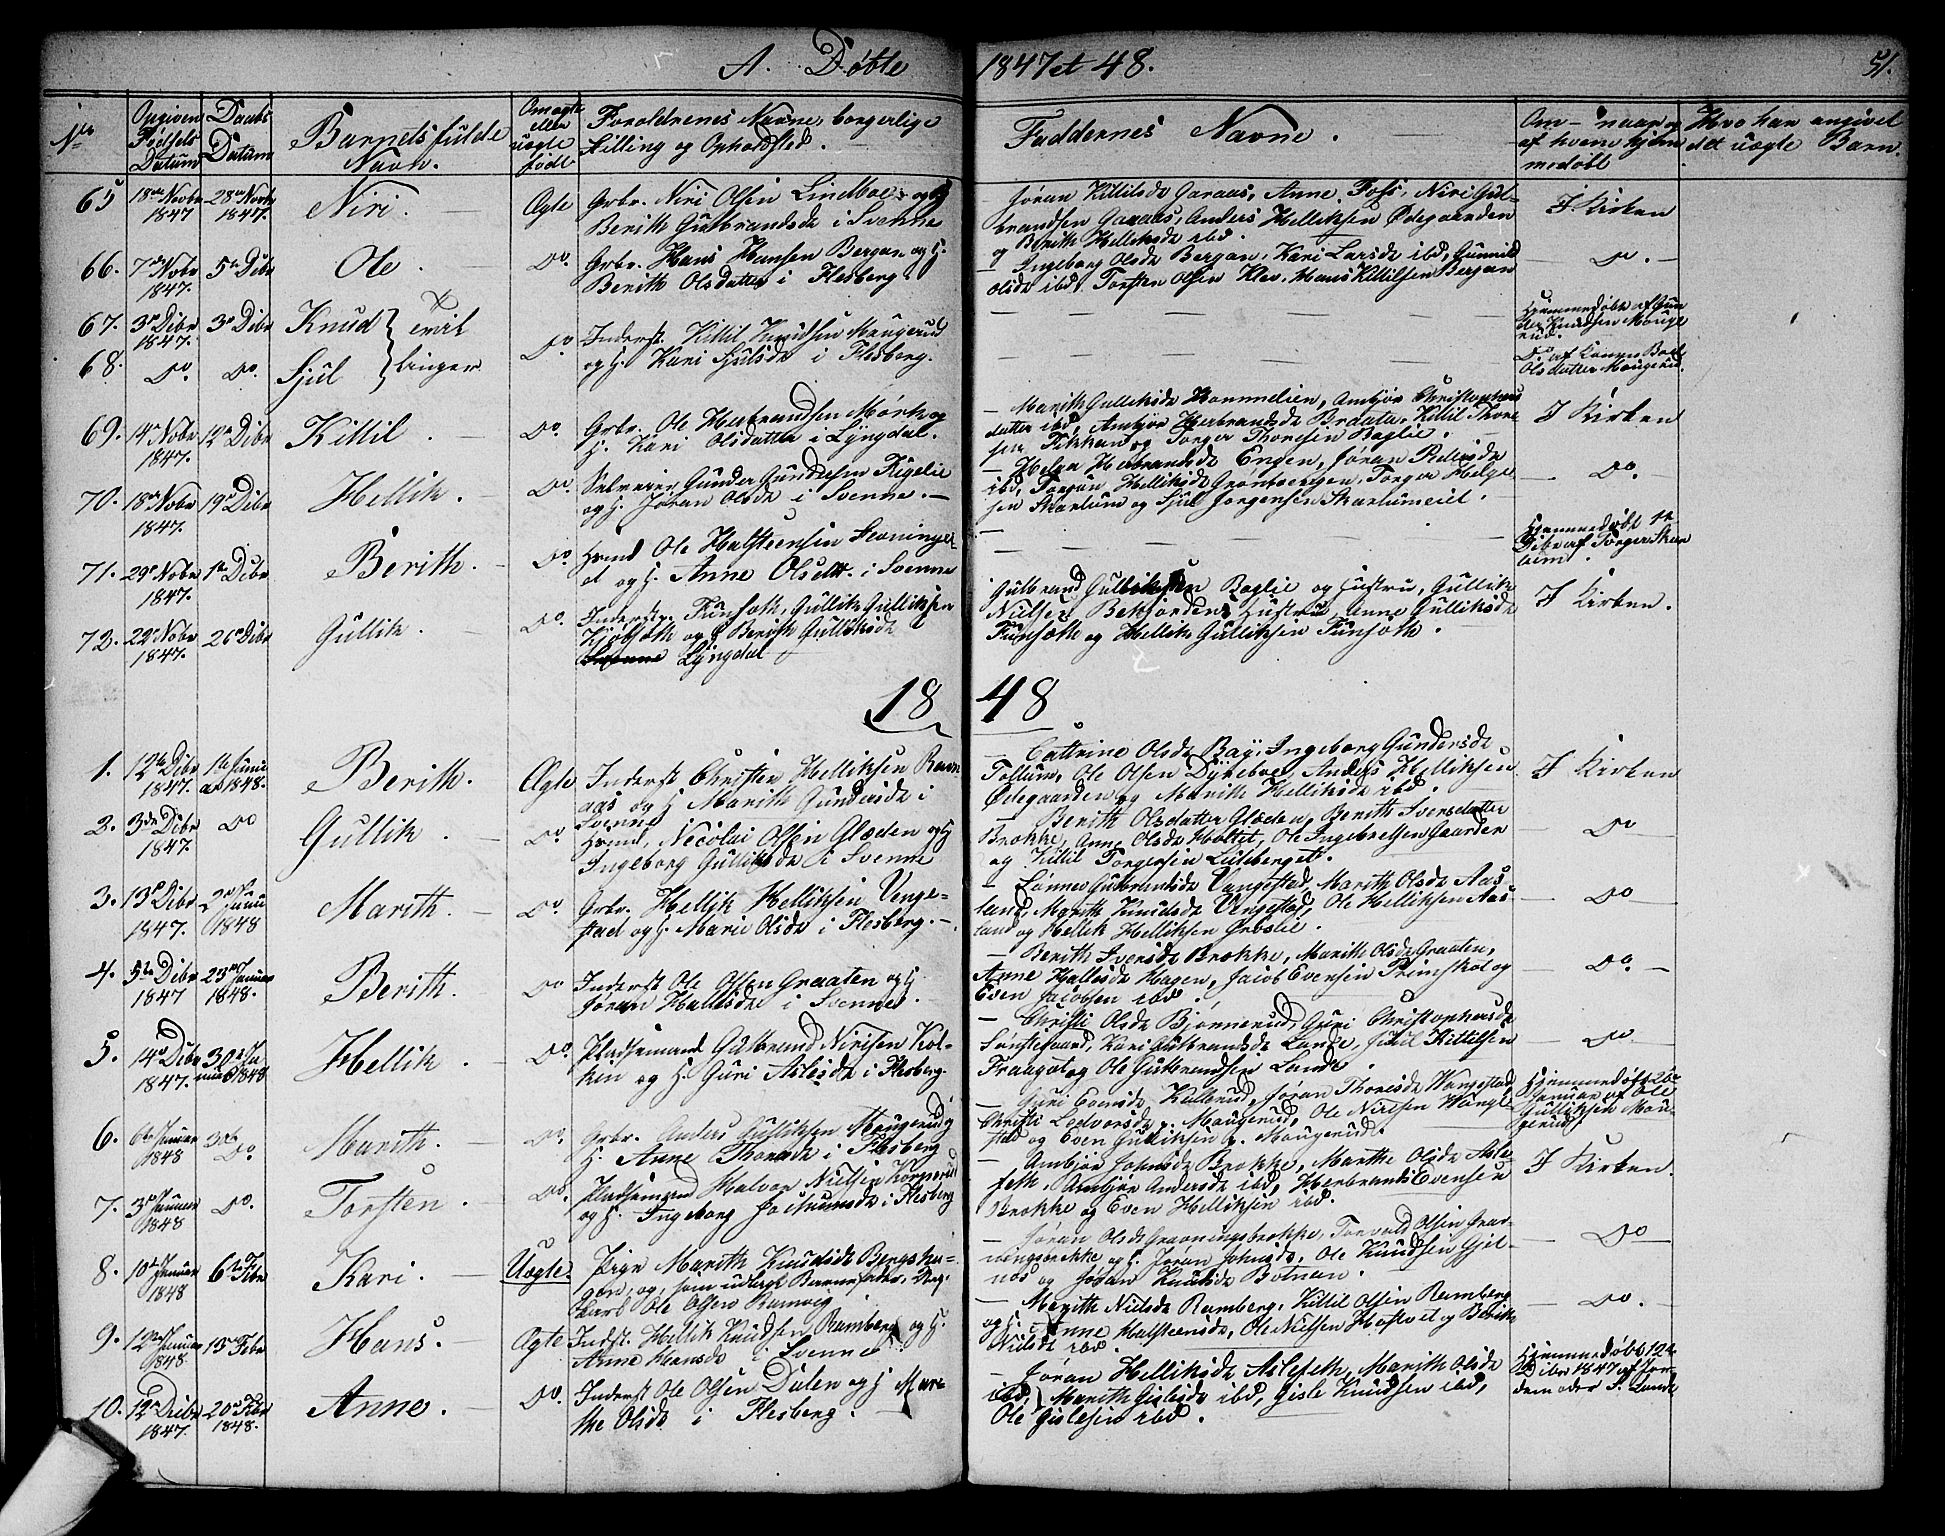 A. Døbte 1847 et 48. 51.
No Opgiven Fødsels Datum Daabs Datum Barnets fulde Navn. Om ægte eller uægte født Foreldrenes Navne, borgerlige Stilling og Opholdsted. Faddernes Navne. Om naar og af hvem hjemmedøbt Hvo har angivet det uægte Barn.
65 18de Novbr 1847 28de Novbr 1847. Niri. Ægte Grbr. Niri Olsen Lindboe og H.
Berith Gulbrandsd. i Svenne
Jøran Kittilsd. Garaas, Anne Foss, Niri Gul-
brandsen Garaas, Anders Helliksen Ødegaarden
og Berith Helliksd. ibd.
I Kirken
66. 7de Novbr 1847. 5te Dcbr Ole. Do. Grbr. Hans Hansen Bergan og H.
Berith Olsdatter i Flesberg
Ingeborg Olsd. Bergan, Kari Larsd. ibd, Gunnild
Olsd. ibd, Torsten Olsen Klev, Hans Kittilsen Bergan
Do.
67. 3de Dcbr 1847. 3de Dcbr Knud } Tvil-
68. Do. Do. Sjul } linger
Do. Inderst. Kittil Knudsen Maugerud
og H. Kari Sjulsd. i Flesberg.
Hjemmedøbt af Gun-
der Knudsen Mauge-
rud.
Do af Konen
Olsdatter Maugerud.
69. 14de Novbr 1847. 12te Dcbr Kittil. Do. Grbr. Ole Herbrandsen Mørk og
H. Kari Olsdatter i Lyngdal.
Marith Gulliksd. Kommelien, Ambjør Christophers
datter ibd, Ambjør Herbrandsd. Bratte, Kittil Thore-
sen Fikkan og Torger Thoresen Baglie.
I Kirken
70. 18de Novbr 1847. 19de Dcbr Hellik. Do. Selveier Gunder Gundersen
og H. Jøran Olsd. i Svenne.
Helga Herbrandsd. Engen, Jøran
ibd, Torgun Helliksd. Grønbergen, Torger Helge-
sen Skarlund og Sjul Jorgensen
Do.
71. 29de Novbr 1847. 1ste Dcbr Berith. Do. Hrmd Ole Halsteensen
og H. Anne Olsdtr. i Svenne
Hjemmedøbt
Dcbr af Torger
72. 29de Novbr 1847. 26de Dcbr Gullik. Do. Inderst. Gullik Gulliksen
og H. Berith Gulliksd.
Svenne Lyngdal
Gulbrand Gulliksen Baglie og Hustru, Gullik
Nilsen Hustru, Anne Gulliksd.
og Hellik Gulliksen
I Kirken.
18 48
1. 12te Dcbr 1847. 1ste Januar 1848. Berith. Ægte Inderst Christen Helliksen Ravn-
aas og H. Marith Gundersd. i
Svenne
Cathrine Olsd. Bay, Ingeborg Gundersd.
Tollum, Ole Olsen Dykeboe, Anders Helliksen
Ødegaarden og Marith Helliksd. ibd.
I Kirken
2. 3de Dcbr 1847. Do Gullik. Do Hrmd, Nicolai Olsen Gladen og H.
Ingeborg Gulliksd. i Svenne
Berith Olsdatter Gladen, Berith Svensdatter
Brokke, Anne Olsd. Holtet, Ole Ingebretsen Gaarden
og Kittil Torgersen Lutberget.
Do
3. 13de Dcbr 1847. 2de Januar 1848 Marith. Do. Grbr. Hellik Helliksen Venge-
stad og H. Marie Olsd. i Flesberg.
Lønnev Gulbrandsd. Vangestad, Marith Olsd. Aas-
land, Marith Knudsd. Vengestad, Ole Helliksen Aas-
land og Hellik Helliksen
Do
4. 5te Dcbr 1847 23de Januar 1848. Berith. Do Inderst Ole Olsen Graaten og H.
Jøran Hallesd. i Svenne.
Berith Svensd. Brokke, Marith Olsd. Graaten,
Anne Hallesd. Hagen, Jacob Evensen og
Even Jacobsen ibd.
Do.
5. 14de Dcbr 1847. 30te Januar 1848 Hellik. Do. Pladsemand Gulbrand Nirisen Kol-
ken og H. Guri Aslesd. i Flesberg.
Christi Olsd. Bjørnerud, Guri Christophersd.
Kari Gulbrandsd. Lande, Kittilsen
og Ole Gulbrandsen Lande.
Do
6. 6te Januar 1848 30te Do. Marith. Do. Grbr. Anders Gulliksen Maugerud og
H. Anne Thoresd. i Flesberg
Guri Evensd. Kallerud, Jøran Thoresd. Vangestad
Christi Ledvorsd. Maugerud, Ole Nirisen Vange-
stad og Even Gulliksen Maugerud.
Hjemmedøbt 26de
Januar af Ole
Gulliksen Mau-
gerud.
7. 3de Januar 1848 Do. Torsten. Do. Pladsemand Halvor Nielsen
og H. Ingeborg i Flesberg
Ambjør Johnsd. Brokke, Marthe Olsd. Asle-
feth, Ambjør Andersd. ibd, Herbrand Evensen
Brokke og Even Helliksen ibd.
I Kirken.
8. 10de Januar 1848 6te Febr Kari. Uægte. Pige Marith Knudsd. Bergsha-
gen, og, som udlagt Barnefader, Ung-
karl Ole Olsen Ramvig
Jøran Olsd. Gravningsbrokke, Torvald Olsen Grav-
ningsbrokke og H. Jøran Johnsd. Ole Knudsen Gjel-
naes og Jøran Knudsd. Botnan.
Do
9. 12te Januar 1848. 13de Febr Hans. Ægte Indst. Hellik Knudsen Ramberg og H.
Anne Hansd. i Svenne
Marith Nielsd. Ramberg, Kittil Olsen Ramberg
og H. Anne Halsteensd., Ole Nielsen Haftvet og Berith
Nielsd. ibd.
Do.
10. 12te Dcbr 1847. 20de Febr 1848. Anne. Do. Inderst Ole Olsen Dalen og H. Mar-
the Olsd. i Flesberg.
Jøran Helliksd. Aslefeth, Marith Olsd.
ibd, Marith Gislesd. ibd, Gisle Knudsen ibd,
Ole Gislesen ibd.
Hjemmedøbt 12te
Dcbr 1847 af Jor-
demoder